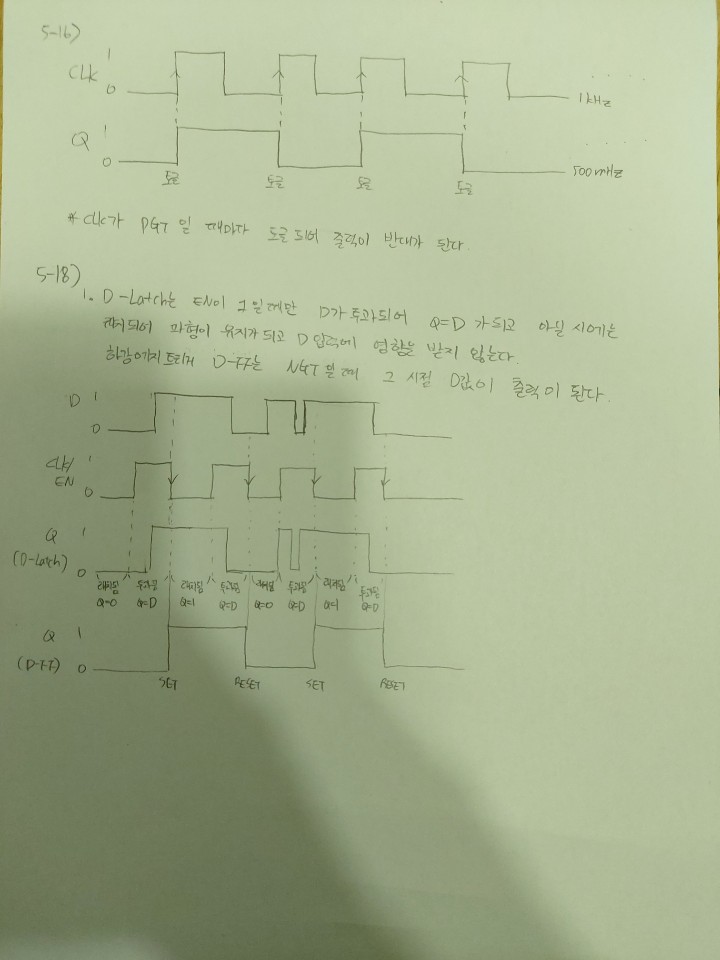 5-16)
CLK 1
0
1kHz
Q 1
0
500mHz
토글 토글 토글 토글
* CLK가 PGT 일 때마다 토글 되어 출력이 반대가 된다.
5-18)
1. D-Latch는 EN이 1일때만 D가 투과되어 Q=D 가 되고 아닐 시에는
래치되어 파형이 유지가 되고 D 입력에 영향을 받지 않는다.
하강에지트리거 D-FF는 NGT 일 때 그 시점 D값이 출력이 된다.
D 1
0
CLK/ 1
EN 0
Q 1
(D-Latch) 0
래치됨 투과됨 래치됨 투과됨 래치됨 투과됨 래치됨 투과됨
Q=0 Q=D Q=1 Q=D Q=0 Q=D Q=1 Q=D
Q 1
(D-FF) 0
SET RESET SET RESET